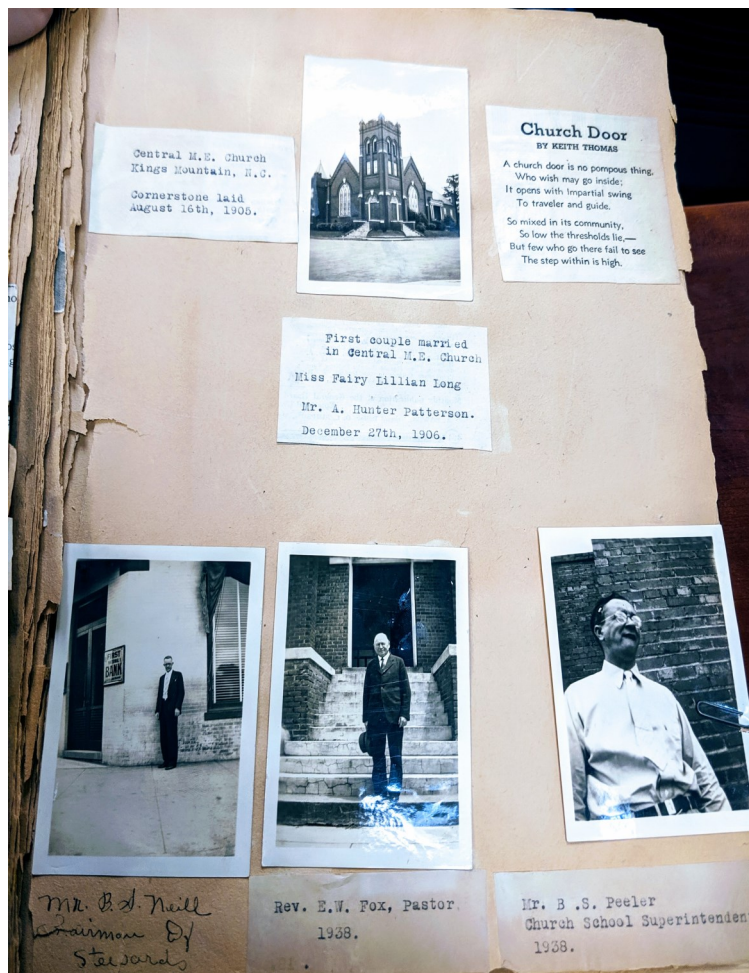 Central M.E. Church
Kings Mountain, N.C.
Cornerstone laid
August 16th, 1905.
Church Door
BY KEITH THOMAS
A church door is no pompous thing,
Who wish may go inside;
It opens with impartial swing
To traveler and guide.
So mixed in its community,
So low the thresholds lie,—
But few who go there fail to see
The step within is high.
First couple married
in Central M.E. Church
Miss Fairy Lillian Long
Mr. A. Hunter Patterson.
December 27th, 1906.
FIRST
BANK
Mr. B.S. Neill
Chairman Of
Stewards
Rev. E.W. Fox, Pastor
1938.
Mr. B .S. Peeler
Church School Superintenden
1938.